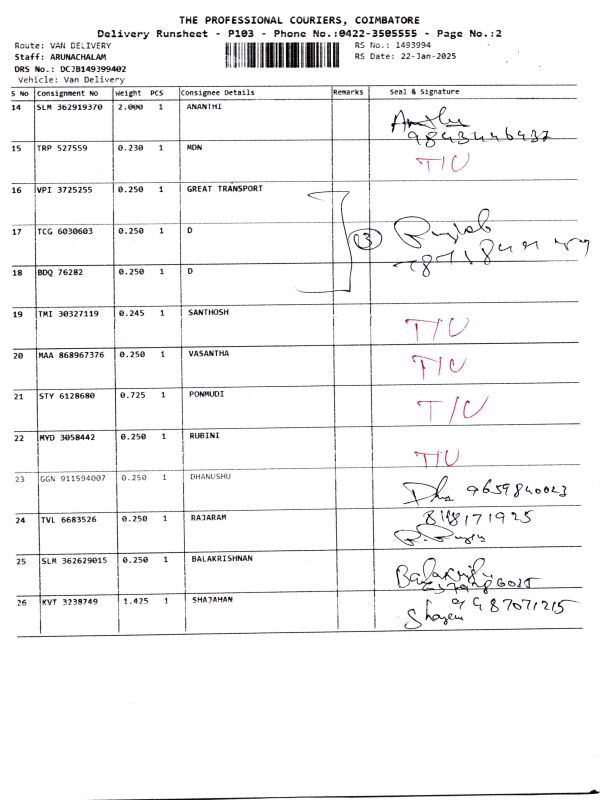 THE PROFESSIONAL COURIERS, COIMBATORE
Delivery Runsheet - P103 - Phone No.:0422-3505555 - Page No.:2
Route: VAN DELIVERY RS No.: 1493994
Staff: ARUNACHALAM RS Date: 22-Jan-2025
DRS No.: DCJB149399402
Vehicle: Van Delivery
S No Consignment No Weight PCS Consignee Details Remarks Seal & Signature
14 SLM 362919370 2.000 1 ANANTHI
9843446437
15 TRP 527559 0.230 1 MDN T/U
16 VPI 3725255 0.250 1 GREAT TRANSPORT
17 TCG 6030603 0.250 1 D (3)
18 BDQ 76282 0.250 1 D
19 TMI 30327119 0.245 1 SANTHOSH T/U
20 MAA 868967376 0.250 1 VASANTHA T/U
21 STY 6128680 0.725 1 PONMUDI T/U
22 MYD 3058442 0.250 1 RUBINI T/U
23 GGN 911594007 0.250 1 DHANUSHU Dha 9659840023
24 TVL 6683526 0.250 1 RAJARAM
25 SLM 362629015 0.250 1 BALAKRISHNAN
26 KVT 3238749 1.425 1 SHAJAHAN 9987071215